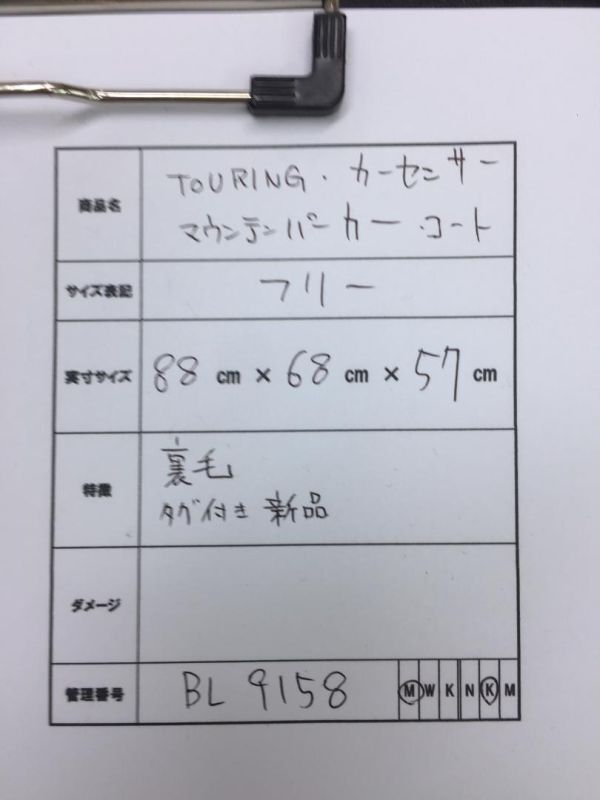 商品名 TOURING・カーセンサー
マウンテンパーカー・コート
サイズ表記 フリー
実寸サイズ 88 cm × 68 cm × 57 cm
特徴 裏毛
タグ付き 新品
ダメージ
管理番号 BL 9158 M W K N K M